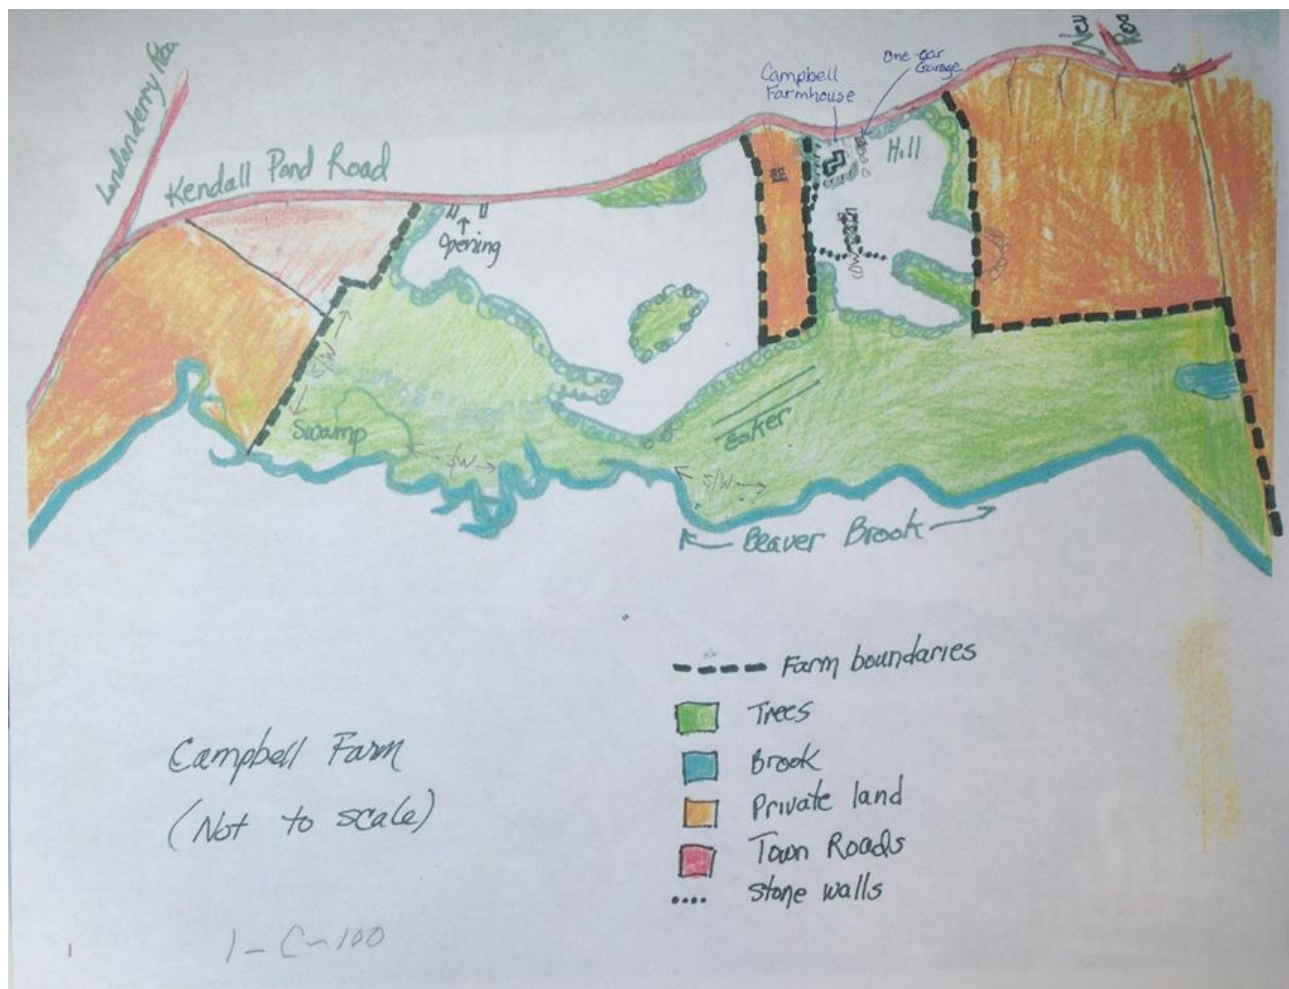 Londonderry Roa
Kendall Pond Road
Opening
Campbell
Farmhouse
One-car
Garage
New
Roa
Hill
S/W
S/W
Swamp
S/W
S/W
Esker
Beaver Brook
Farm boundaries
Trees
Brook
Private land
Town Roads
Stone walls
Campbell Farm
(Not to scale)
1-C-100